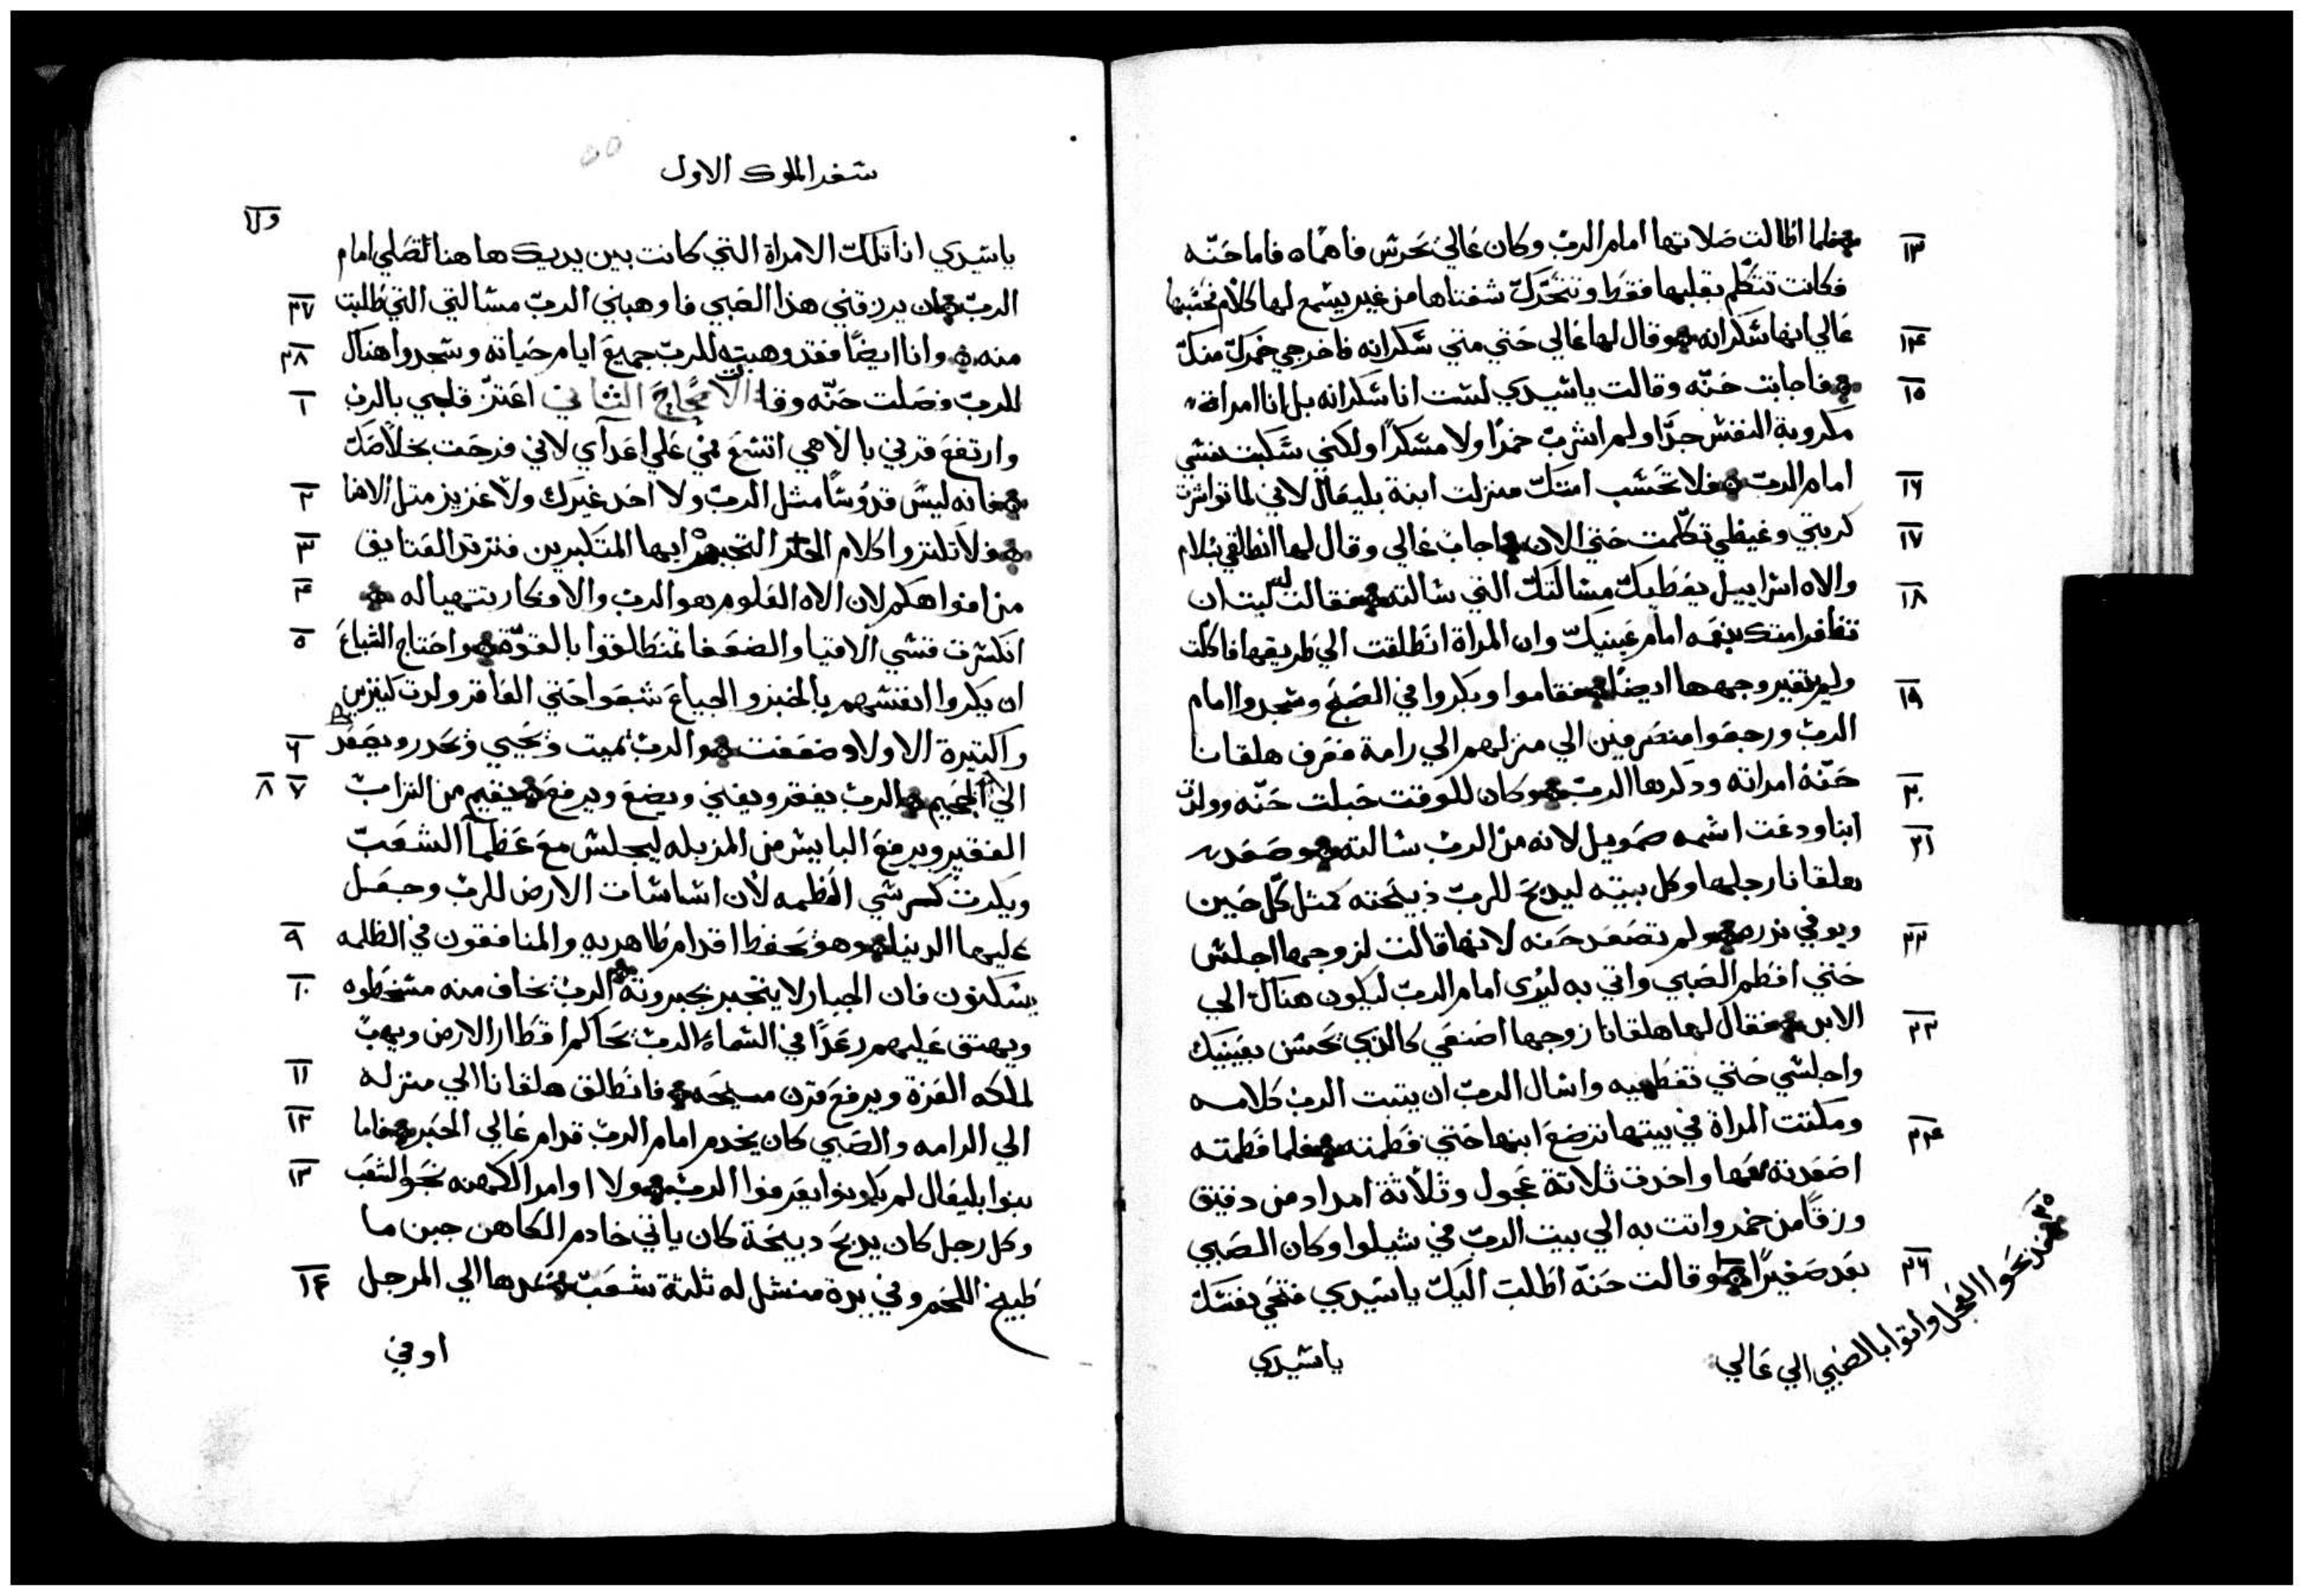 فلما اطالت صلاتها امام الرب وكان عالي يحرس فاها فاما حنّه
فكانت تتكلم بقلبها فقط وتتحرك شفتاها من غير يسمع لها كلام فحسبها
عالي انها سكرانه وقال لها عالي حتي متي سكرانه فاخرجي خمرك منك
فاجابت حنّه وقالت يا سيدي لست انا سكرانه بل انا امراة
مكروبة النفس جدًا ولم اشرب خمرًا ولا مسكرًا ولكني سكبت نفسي
امام الرب فلا تحسب امتك منزلت ابنة بليعال لاني لما تواترت
كربتي وغيظي تكلمت حتي الان اجاب عالي وقال لها انطلقي بسلام
والاه اسراييل يعطيك مسالتك التي سالته فقالت ليت ان
تظافر امتك بنعمه امام عينيك وان المراة انطلقت الي طريقها فاكلت
ولم يتغير وجهها ايضًا فقاموا وبكروا في الصبح وسجدوا امام
الرب ورجعوا منصرفين الي منزلهم الي رامة فعرف هلقانا
حنّة امراته وذكرها الرب وكان للوقت حبلت حنّه وولدت
ابنا ودعت اسمه صمويل لانه من الرب سالته وصعد
هلقانا رجلها وكل بيته ليذبح للرب ذبيحته كمثل كل حين
ويوفي نذره ولم تصعد حنه لانها قالت لزوجها اجلس
حتي افطم الصبي واتي به ليُرى امام الرب ليكون هناك الي
الابد فقال لها هلقانا زوجها اصنعي كالذي يحسن بعينيك
واجلسي حتي تفطميه واسال الرب ان يتبت الرب كلامه
ومكتت المراة في بيتها ترضع ابنها حتي فطمته فلما فطمته
اصعدته معها واخذت ثلاتة عجول وثلاثة امداد من دقيق
وزقًا من خمر واتت به الي بيت الرب في شيلوا وكان الصبي
بعد صغيرًا وقالت حنّه اطلب اليك يا سيدي فتحي نفسك
١٣
١٤
١٥
١٦
١٧
١٨
١٩
٢٠
٢١
٢٢
٢٣
٢٤
٢٦
٢٥ فذبحوا العجل واتوا بالصبي الي عالي
يا سيدي
سفر الملوك الاول
يا سيدي انا تلك الامراة التي كانت بين يديك هاهنا لتصلي امام
الرب ان يرزقني هذا الصبي فاوهبني الرب مسالتي التي طلبت
منه وانا ايضًا فقد وهبته للرب جميع ايام حياته وسجدوا هناك
للرب وصلت حنّه وقالت الاصحاح الثاني اعتز قلبي بالرب
وارتفع قرني بالاهي اتسع فمي علي اعدآي لاني فرحت بخلاصك
فانه ليس قدوسًا مثل الرب ولا احد غيرك ولا عزيز متل الاهنا
فلا تلتزوا كلام التجبر ايها المتكبرين فتزتد العتايق
من افواهكم لان الاه العلوم هو الرب والافكار تتهيا له
انكسرت قسي الاقويا والضعفا تمنطقوا بالقوة واحتاج الشباع
ان يكروا انفسهم بالخبز والجياع شبعوا حتي العاقر ولدت كتيرين
والكتيرة الاولاد ضعفت هو الرب يميت ويحيي ويحدر ويصعد
الي الجحيم الرب يفقر ويغني ويضع ويرفع يقيم من التراب
الفقير ويرفع البايس من المزبله ليجلس مع عظمآ الشعب
ويكرت كرسي العظمه لان اساسات الارض للرب وجعل
عليها الدنيا وهو يحفظ اقدام طاهريه والمنافقون في الظلمه
يسكنون فان الجبار لا يتجبر بجبروته الرب يخاف منه مسخطوه
ويهتق عليهم رعدًا في السماء الرب يحاكم اقطار الارض ويهب
لملكه العزة ويرفع قرن مسيحه فانطلق هلقانا الي منزله
الي الرامه والصبي كان يخدم امام الرب قدام عالي الحبر فاما
بنوا بليعال لم يكونوا يعرفوا الرب ولا اوامر الكهنه نحو الشعب
وكل رجل كان يذبح دبيحة كان ياتي خادم الكاهن حين ما
طبيخ اللحم وفي يدة منشل له ثلثة شعب فيحدرها الي المرجل
٢٧
٢٨
١
٢
٣
٤
٥
٦
٧ ٨
٩
١٠
١١
١٢
١٣
١٤
او في